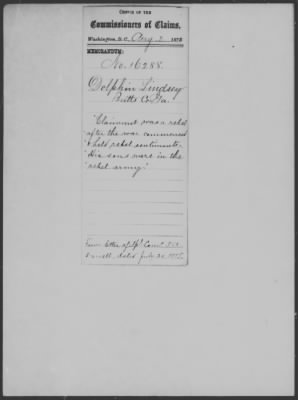 OFFICE OF THE
Commissioners of Claims,
Washington, D. C. Aug 2 187
MEMORANDUM:
No. 16288.
Dolphin Lindsey
Butts Co. Ga.
"Claimant was a rebel
after the war commenced
& held rebel sentiments.
His sons were in the
rebel army."
From letter of
dated July 30